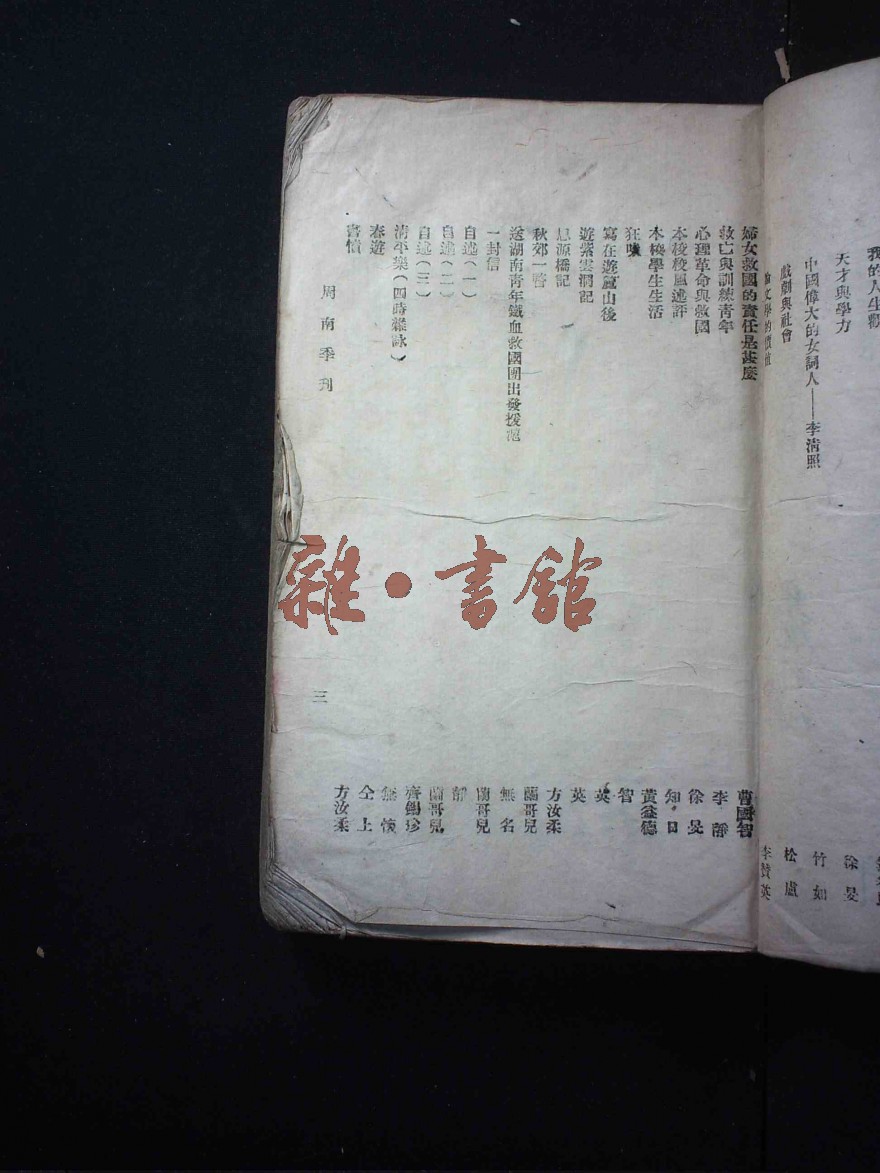 我的人生觀
天才與學力 徐旻
中國偉大的女詞人——李清照 竹如
戲劇與社會 松盧
論文學的價值 李賛英
婦女救國的責任是甚麼 曹國智
救亡與訓練靑年 李靜
心理革命與救國 徐旻
本校校風述評 知日
本校學生生活 黃益德
狂嘯 智
寫在遊廬山後 英
遊紫雲澗記 英
思源橋記 方汝柔
秋郊一瞥 蘭哥兒
送湖南靑年鐵血救國團出發援滬 無名
一封信 蘭哥兒
自述（一） 靜
自述（二） 蘭哥兒
自述（三） 齊錫珍
淸平樂（四時雜詠） 無懷
春遊 仝上
書憤 方汝柔
周南季刋
三
雜·書館